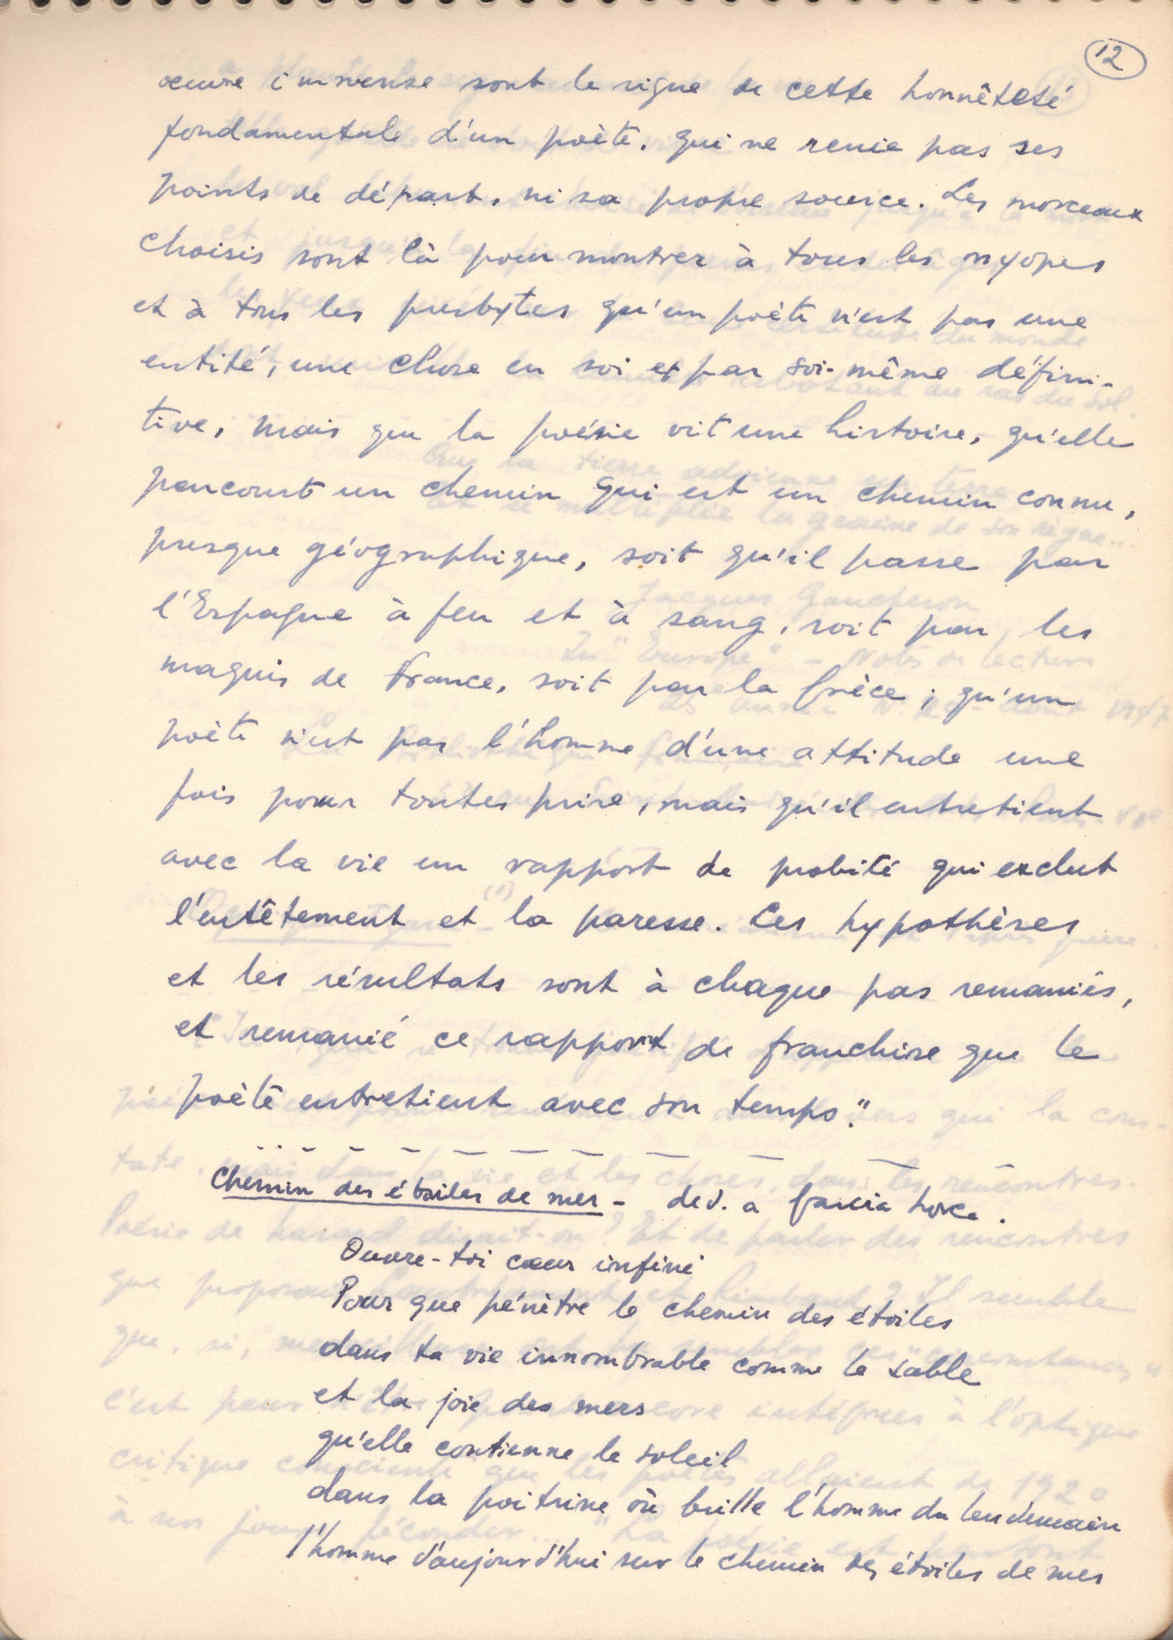 12
œuvre immense sont le signe de cette honnêteté
fondamentale d'un poète. qui ne renie pas ses
points de départ, ni sa propre source. Les morceaux
choisis sont là pour montrer à tous les myopes
et à tous les presbytes qu'un poète n'est pas une
entité, une chose en soi et par soi-même défini-
tive, mais que la poésie vit une histoire, qu'elle
parcourt un chemin qui est un chemin connu,
presque géographique, soit qu'il passe par
l'Espagne à feu et à sang, soit par les
maquis de France, soit par la Grèce ; qu'un
poète n'est pas l'homme d'une attitude une
fois pour toutes prise, mais qu'il entretient
avec la vie un rapport de probité qui exclut
l'entêtement et la paresse. Les hypothèses
et les résultats sont à chaque pas remaniés,
et remanié ce rapport de franchise que le
poète entretient avec son temps."
Chemin des étoiles de mer - ded. a Garcia Lorca.
Ouvre-toi cœur infini
Pour que pénètre le chemin des étoiles
dans ta vie innombrable comme le sable
et la joie des mers
qu'elle contienne le soleil
dans la poitrine où brille l'homme du lendemain
l'homme d'aujourd'hui sur le chemin des étoiles de mer